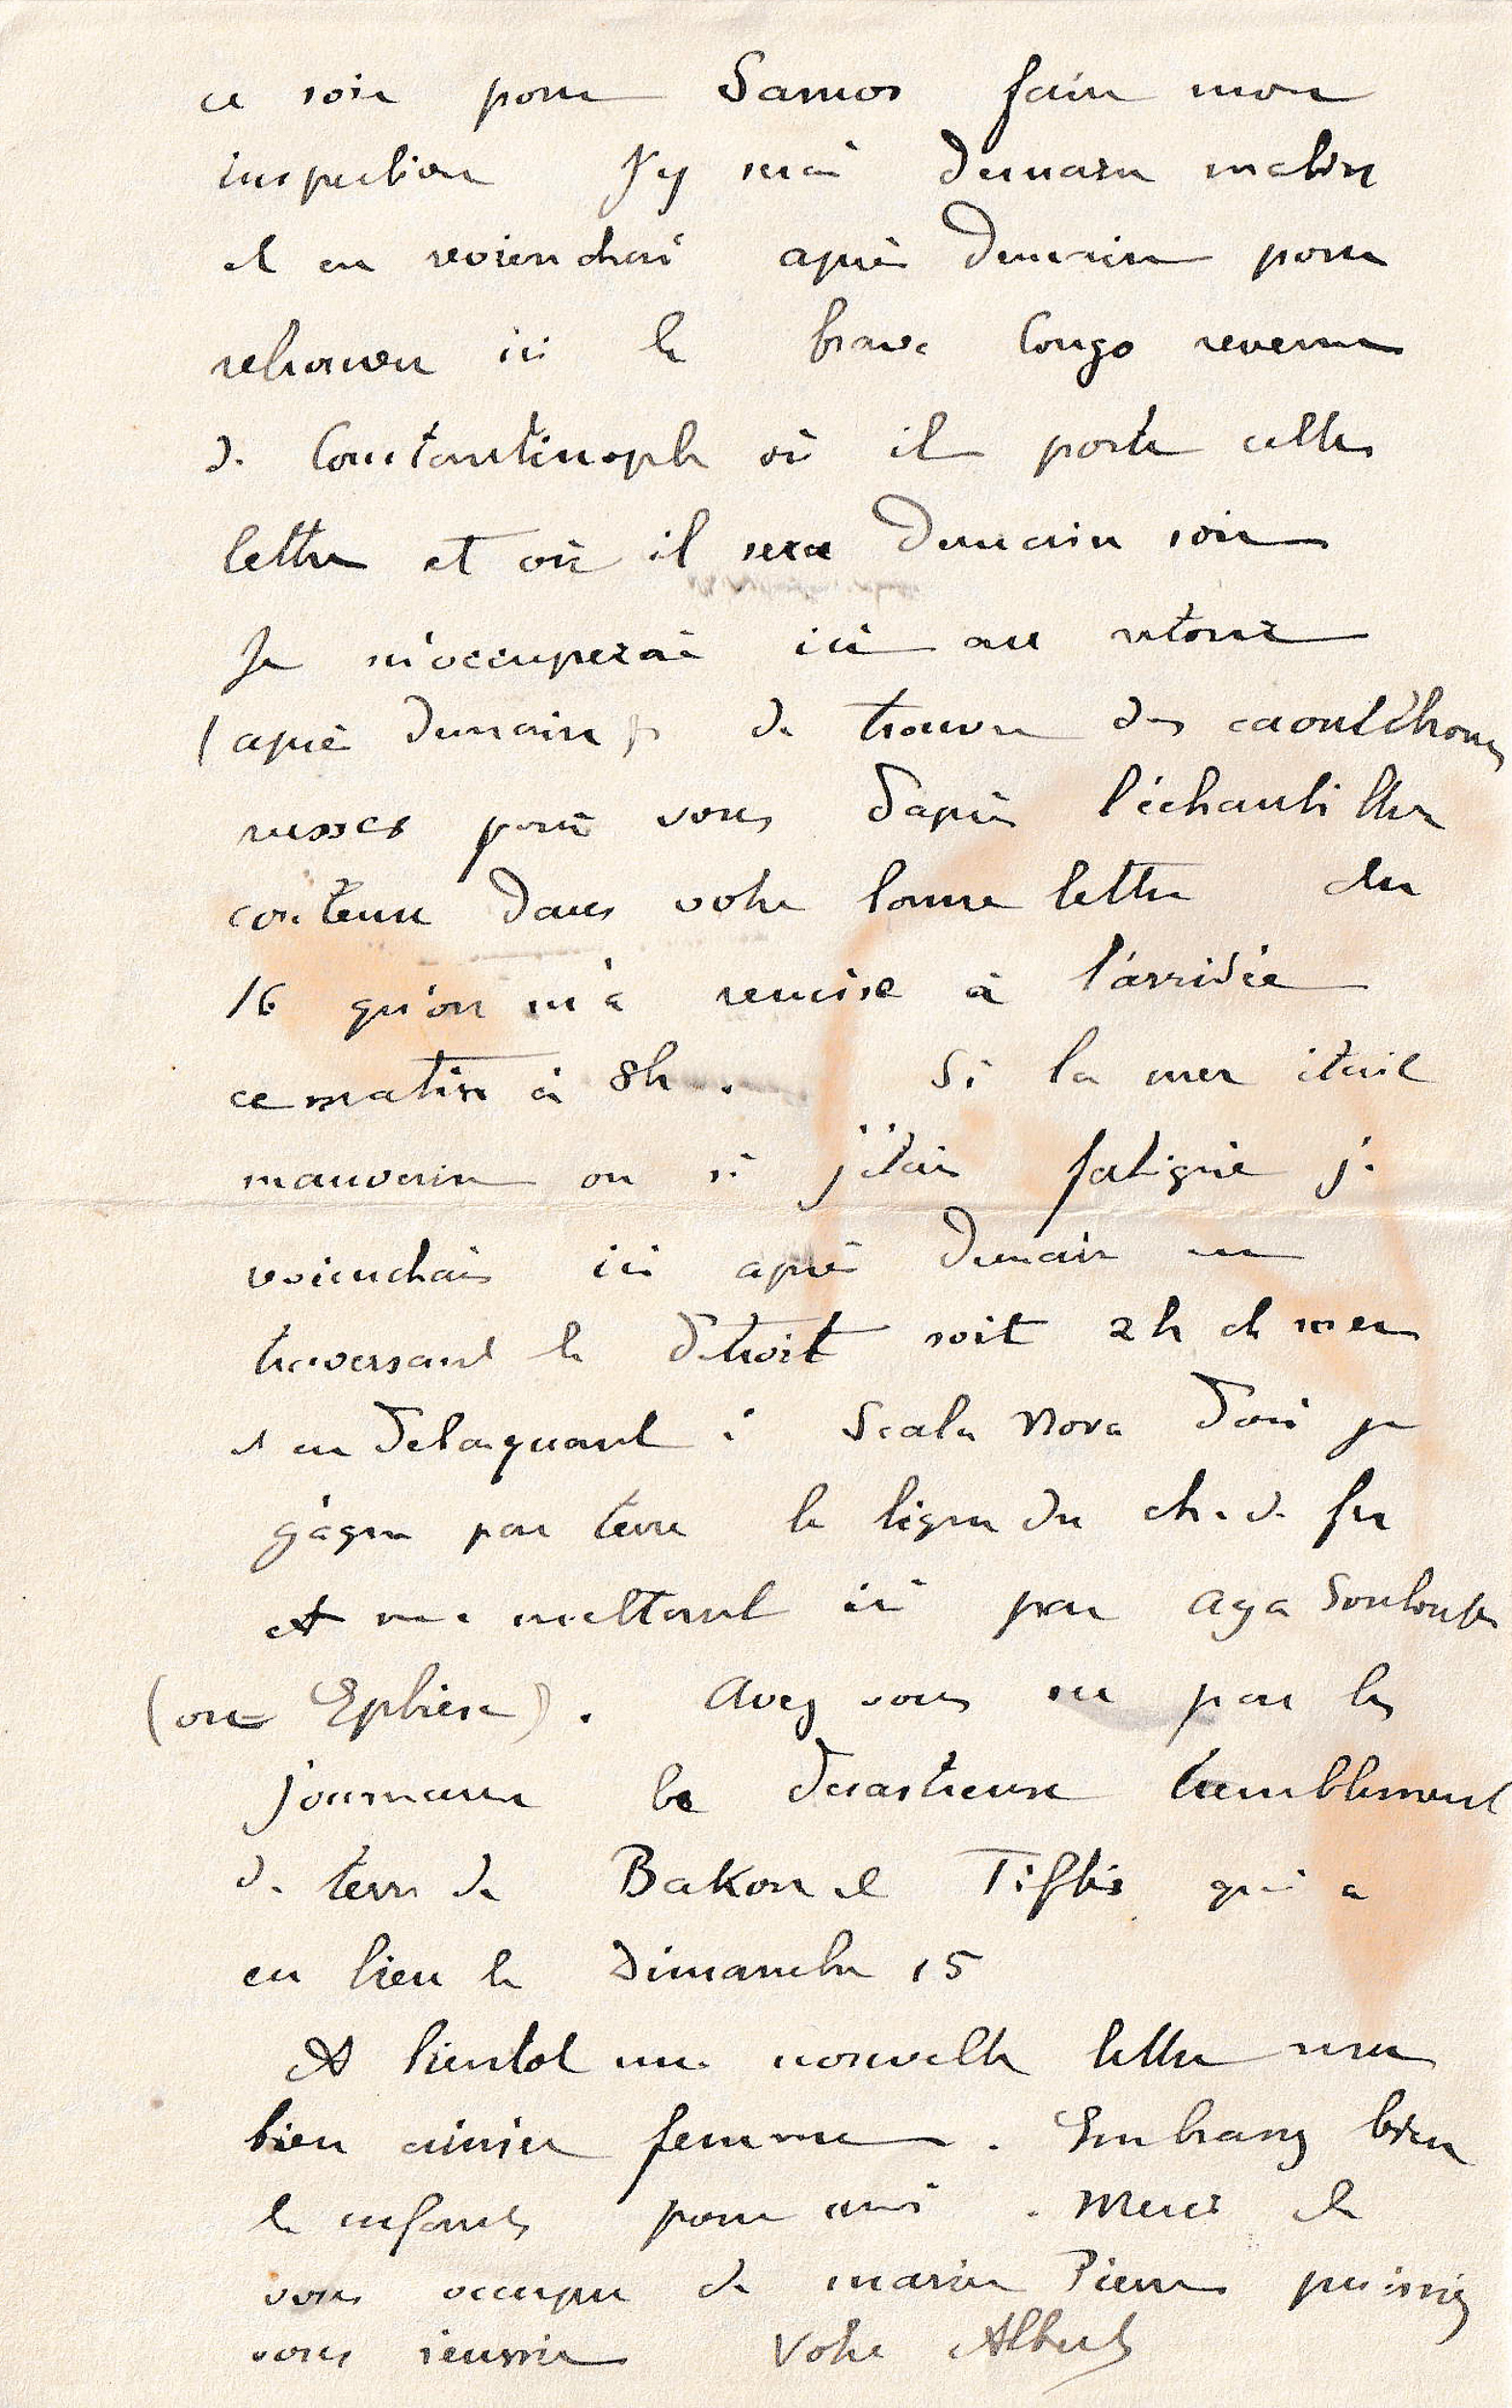 ce soir pour Samos faire mon
inspection J'y serai demain matin
et en reviendrai après demain pour
retrouver ici le brave Congo revenu
de Constantinople où il porte cette
lettre et où il sera demain soir
Je m'occuperai ici au retour
(après demain) de trouver des caoutchoucs
russes pour vous d'après l'échantillon
contenu dans votre bonne lettre du
16 qu'on m'a remise à l'arrivée
ce matin à 8h. Si la mer était
mauvaise ou si j'étais fatigué je
reviendrais ici après demain en
traversant le détroit soit 2h de mer
et en débarquant à Scala Nova d'où je
gagne par terre la ligne du ch. de fer
et me mettant ici par Aya Soulouk
(ou Ephèse). Avez vous vu par les
journaux le désastreux tremblement
de terre de Bakou et Tiflis qui a
eu lieu le Dimanche 15
A bientôt une nouvelle lettre ma
bien aimée femme. Embrassez bien
les enfants pour moi. Merci de
vous occuper de marier Pierre puissiez
vous réussir Votre Albert